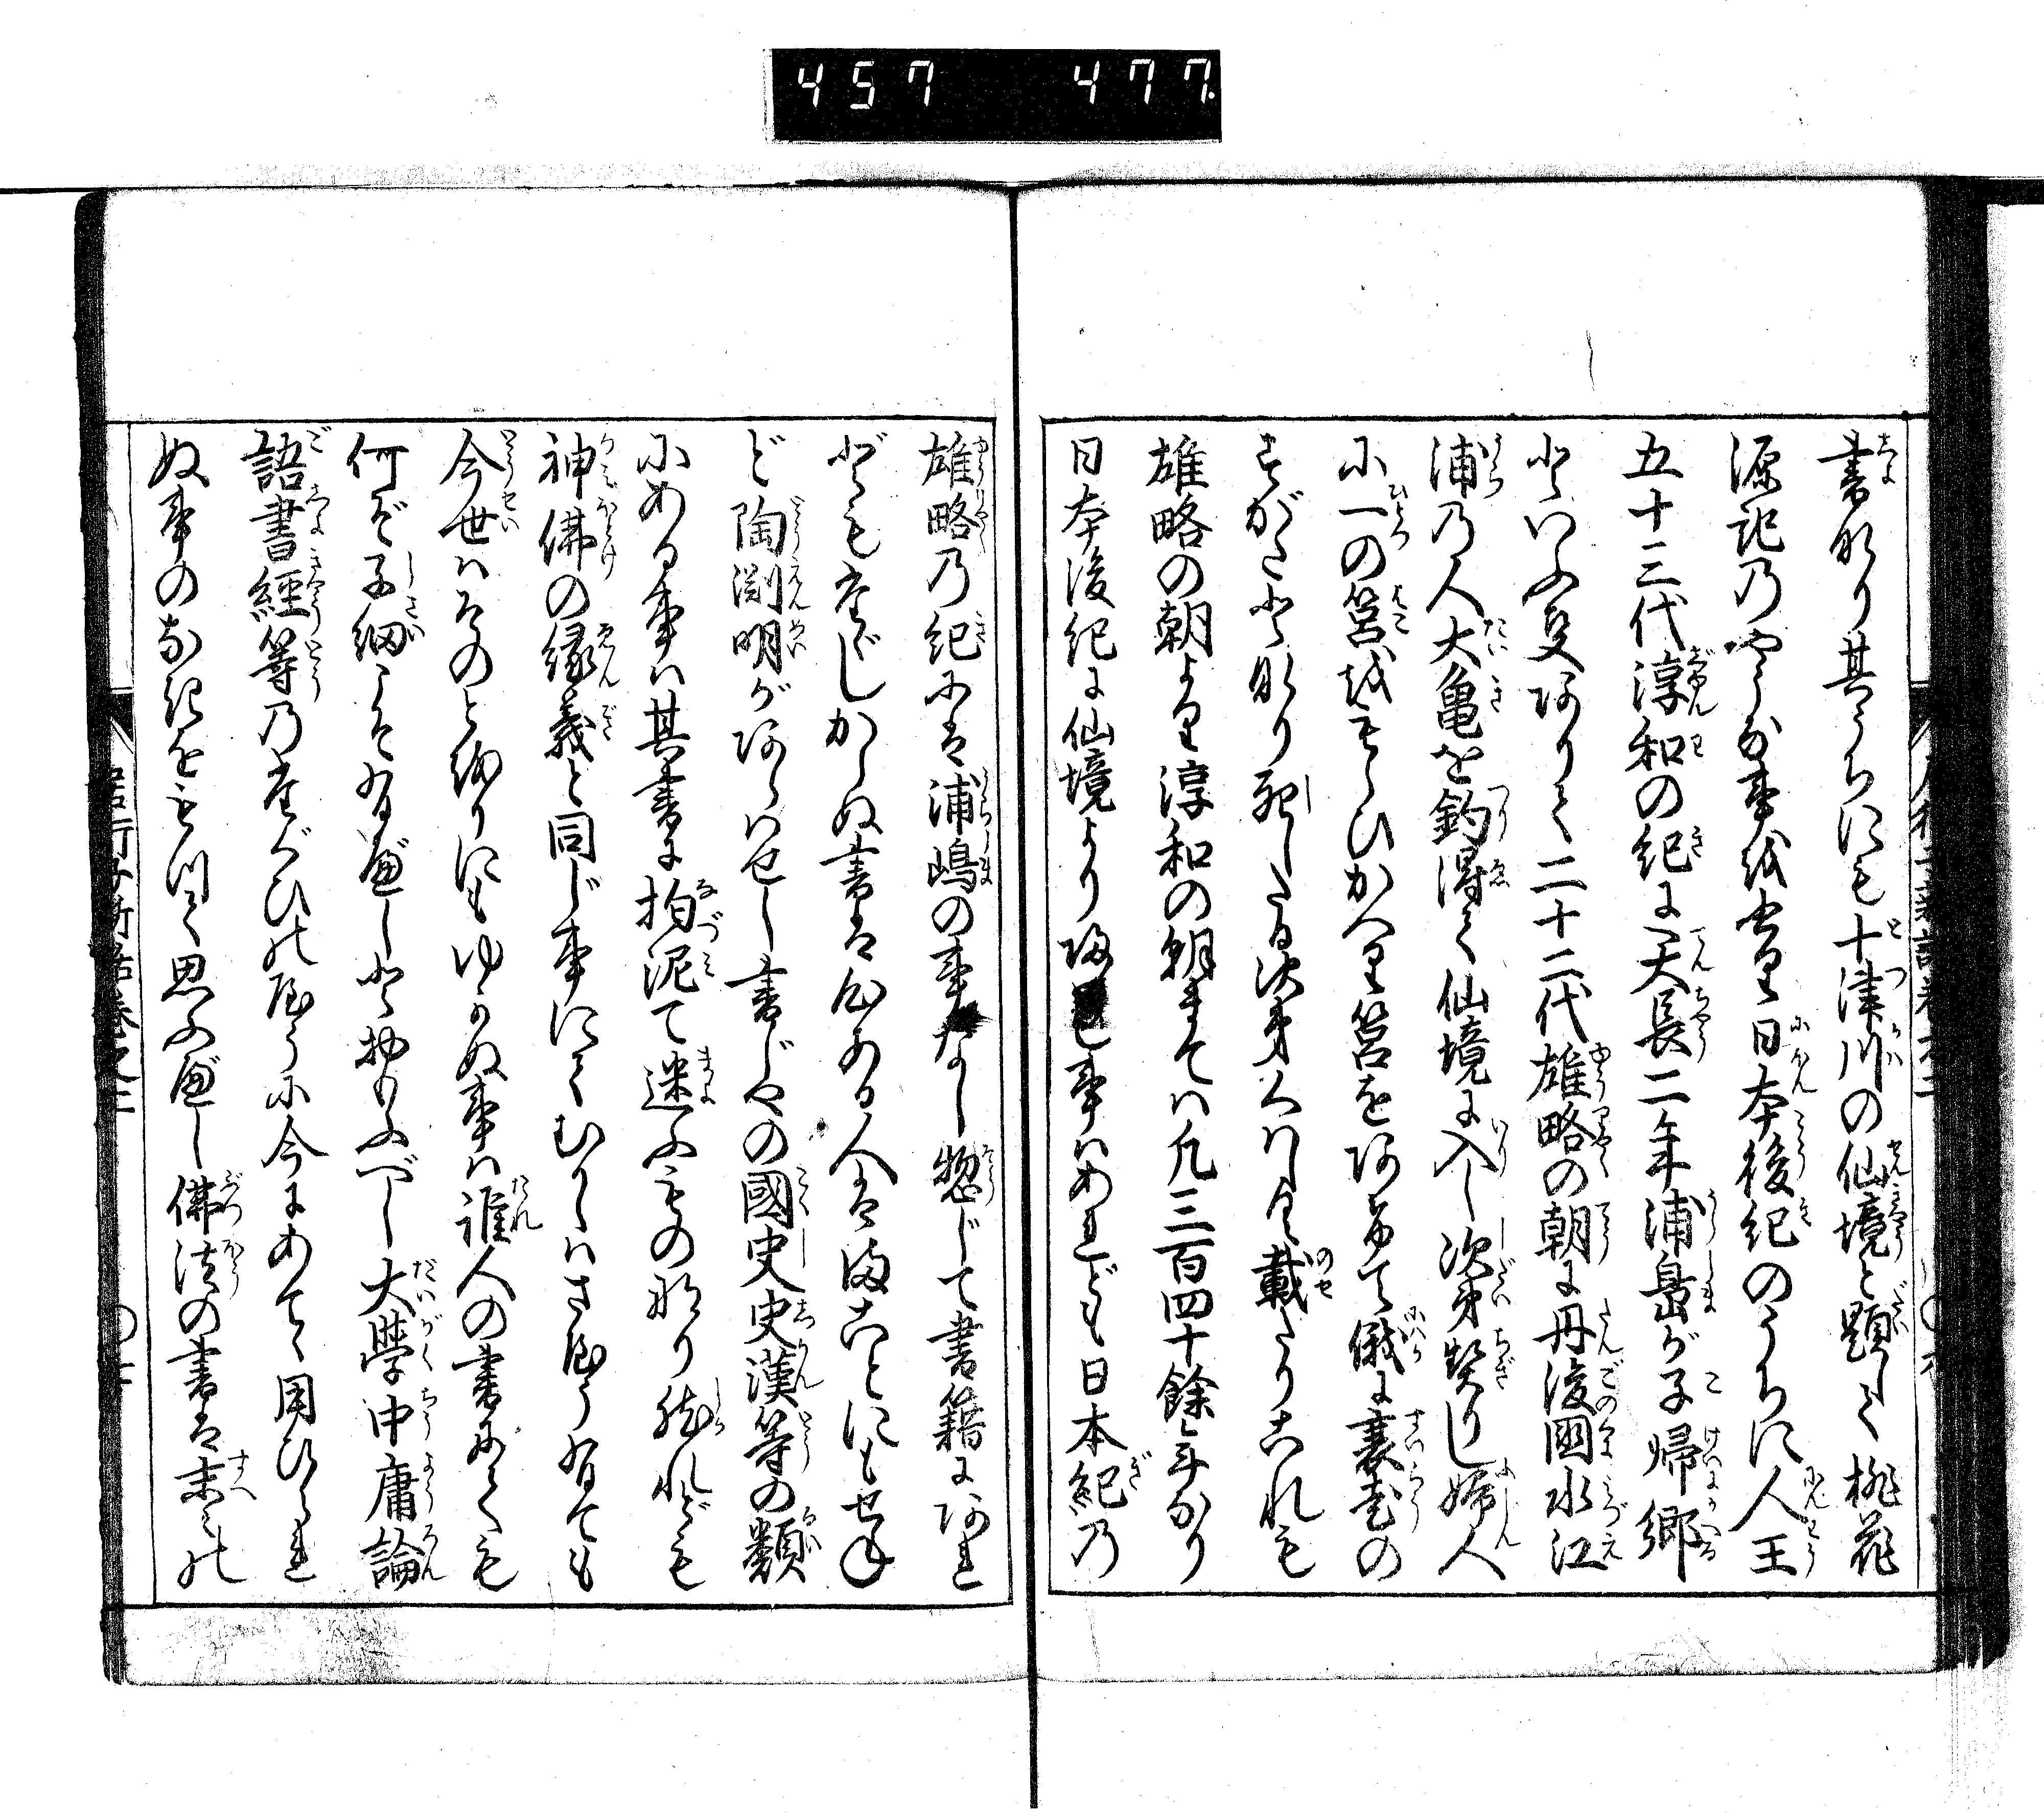 457 477
書なり其うちにも十津川の仙境と題して桃花
源記のやうな事を書り日本後紀のうちに人王
五十三代淳和の紀に天長二年浦島が子帰郷
といふ事ありて二十二代雄略の朝に丹後國水江
浦の人大亀を釣得て仙境に入し次第契りし婦人
に一の筥をもらひかへり筥をあけて俄に衰老の
すがたとなり死したる次第くはしく載たりこれも
雄略の朝より淳和の朝まては凡三百四十餘年なり
日本後紀に仙境より帰 事はあれども日本紀の
雄略の紀には浦嶋の事 なし惣じて書籍にあれ
ども存じからぬ書は心ある人はまことにもせね
ど陶淵明があらはせし書じやの國史史漢等の類
にある事は其書に拘泥て迷ふものなり然れども
神佛の縁義と同じ事にてむかしはさやう有ても
今世はそのとをりにもゆかぬ事は誰人の書にても
何ぞ子細こそ有べしと思ふべし大學中庸論
語書經等のたぐひのやうに今にあてゝ用ひられ
ぬ事のなきをもつて思ふべし佛法の書は末々の